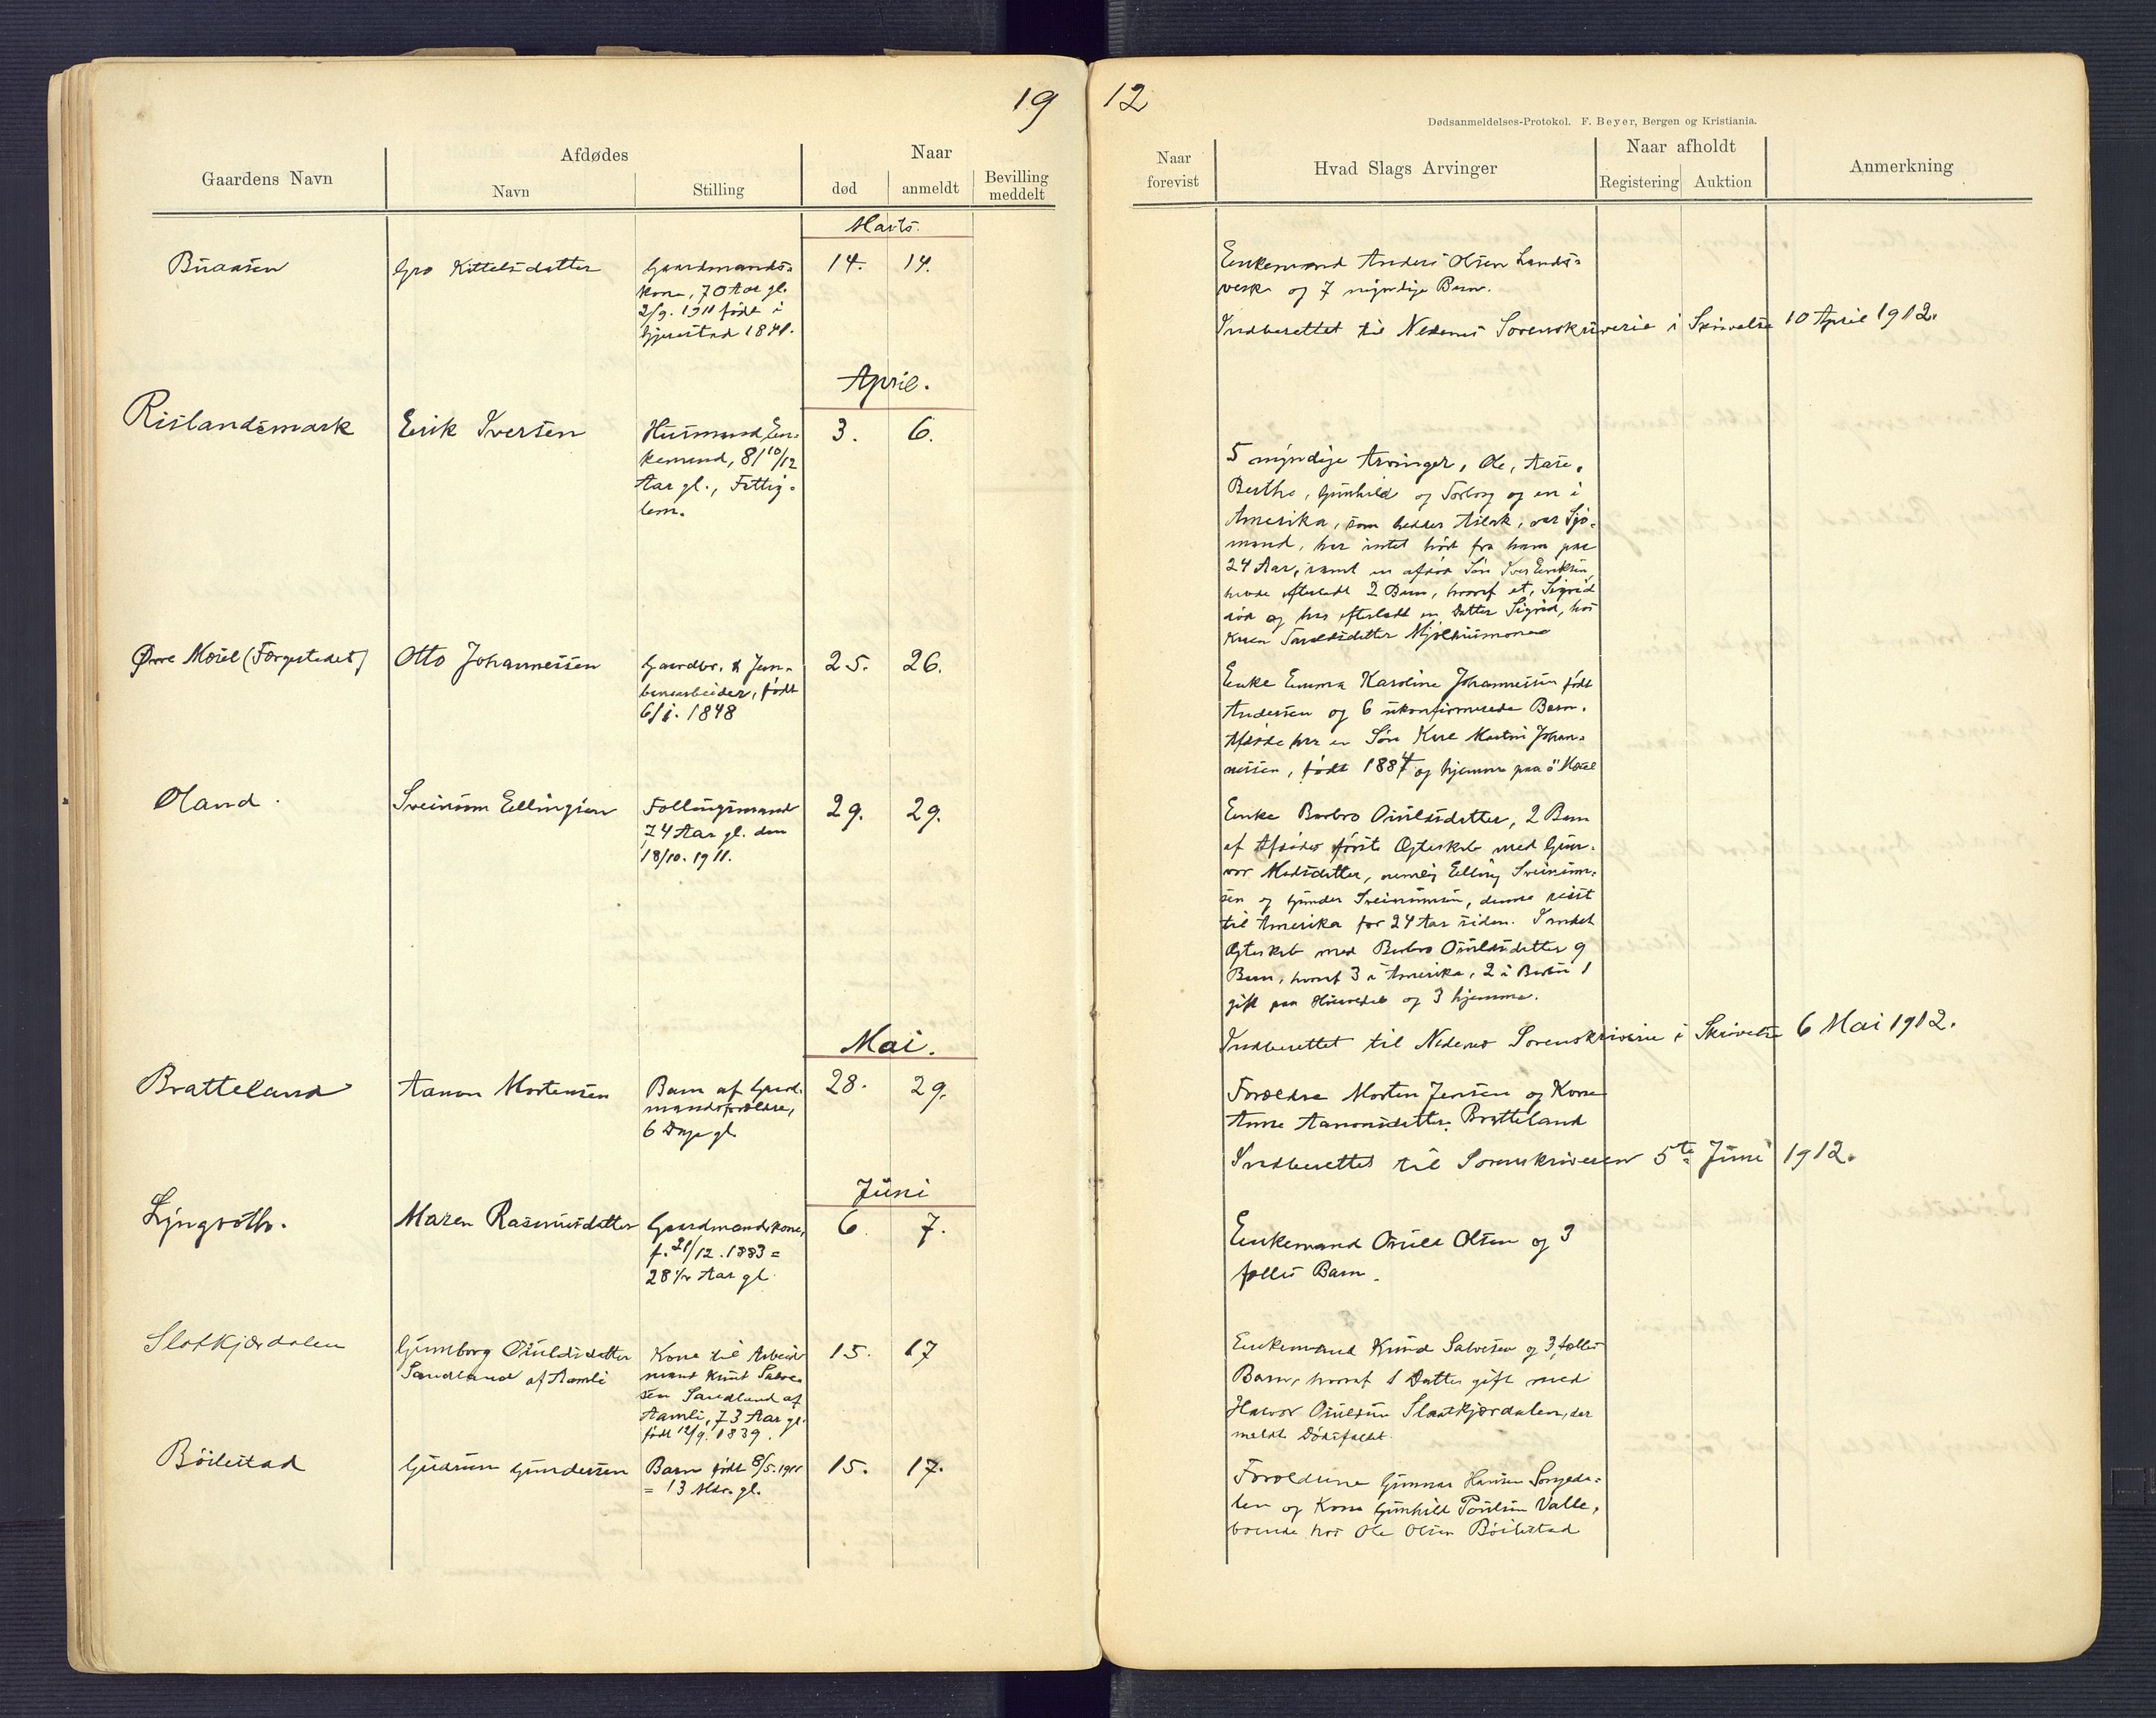 19 12
Dødsanmeldelses-Protokol. F. Beyer, Bergen og Kristiania.
Gaardens Navn
Afdødes
Navn
Stilling
Naar
død
anmeldt
Bevilling
meddelt
Naar
forevist
Hvad Slags Arvinger
Naar afholdt
Registering
Auktion
Anmerkning
Marts.
Buaasen
Gro Kittelsdatter
Gaardmands-
kone, 70 Aar gl.
2/9. 1911 født i
Gjerestad 1841.
14.
14.
Enkemand Anders Olsen Lands-
verk og 7 myndige Barn.
Indberettet til Nedenes Sorenskriverie i Skrivelse 10 April 1912.
April.
Rislandsmark
Erik Iversen
Husmand, En-
kemand, 81 10/12
Aar gl., Fattig-
lem.
3.
6.
5 myndige Arvinger, Ole, Aase,
Berthe, Gunhild og Torborg og en i
Amerika, som hedder Aslak, var Sjø-
mand, har intet hørt fra ham paa
24 Aar, samt en afdød Søn Iver Eriksen,
havde efterladt 2 Barn, hvoraf et, Sigrid
død og har efterladt en Datter Sigrid, hos
Karen Taraldsdatter
Øvre Mosel (Færgestedet)
Otto Johannessen
Gaardbr. & Jern-
banearbeider, født
6/1. 1848
25.
26.
Enke Emma Karoline Johannessen født
Andersen og 6 ukonfirmerede Barn.
Afdøde har en Søn Karl Martin Johan-
nessen, født 1884 og hjemme paa ö. Mosel
Oland.
Sveinum Ellingsen
Follingsmand
74 Aar gl. den
18/10. 1911.
29.
29.
Enke Barbro Osuldsdatter, 2 Barn
af Afdødes første Ægteskab med Gun-
vor Madsdatter, nemlig Elling Sveinum-
sen og Gunder Sveinumsen, denne reist
til Amerika for 24 Aar siden. I andet
Ægteskab med Barbro Osuldsdatter 9
Barn, hvoraf 3 i Amerika, 2 i 1
gift paa og 3 hjemme.
Indberettet til Nedenes Sorenskriverie i Skrivelse 6 Mai 1912.
Mai.
Bratteland
Aanon Mortensen
Barn af Gaard-
mandsforældre,
6 Dage gl.
28.
29.
Forældre Morten Jensen og Kone
Anne Aanonsdatter, Bratteland
Indberettet til Sorenskriveren 5te Juni 1912.
Juni
Lyngroth.
Maren Rasmusdatter
Gaardmandskone,
f. 21/12. 1883 =
28 1/2 Aar gl.
6
7.
Enkemand Osuld Olsen og 3
fælles Barn.
Slotkjærdalen
Gunborg Osuldsdatter
Sandland af Aamli
Kone til Arbeids-
mand Knut Salve-
sen Sandland af
Aamli, 73 Aar gl.
født 12/9. 1839.
15.
17
Enkemand Knud Salvesen og 3 fælles
Barn, hvoraf 1 Datter gift med
Halvor Osuldsen Slaatkjærdalen, der
meldte Dødsfaldet.
Böilestad
Gudrun Gundersen
Barn født 8/5. 1911
= 13 Mdr. gl.
15.
17.
Forældrene Gunnar Hansen Songeda-
len og Kone Gunhild Poulsen Valle,
boende hos Ole Olsen Böilestad